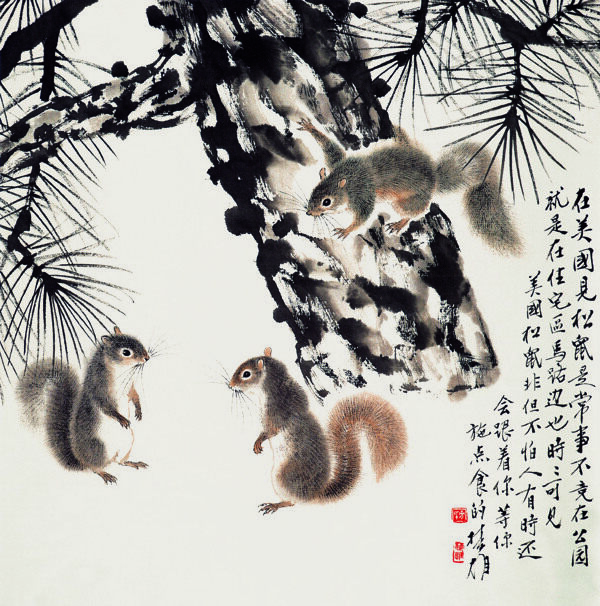 在美國見松鼠是常事不竟在公园
就是在住宅區馬路边也時〻可見
美國松鼠非但不怕人有時还
会跟着你等你
施点食的